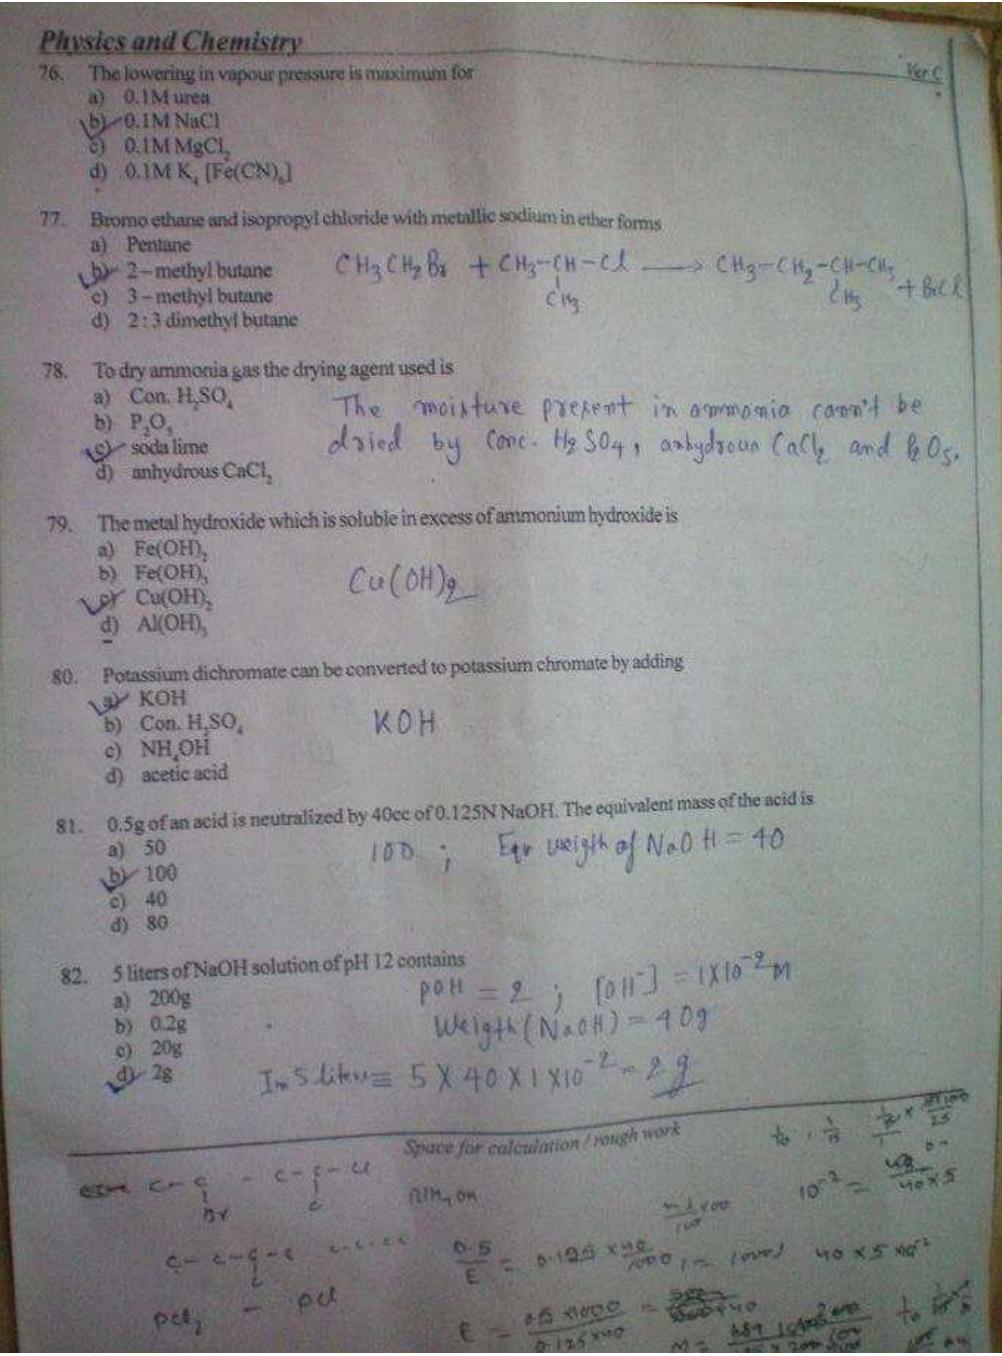 Physics and Chemistry
Ver C
76. The lowering in vapour pressure is maximum for
a) 0.1M urea
b) 0.1M NaCl
c) 0.1M MgCl₂
d) 0.1M K₄ [Fe(CN)₆]
77. Bromo ethane and isopropyl chloride with metallic sodium in ether forms
a) Pentane
b) 2-methyl butane
c) 3-methyl butane
d) 2:3 dimethyl butane
CH₃CH₂Br + CH₃-CH-Cl → CH₃-CH₂-CH-CH₃ + BrCl
CH₃ CH₃
78. To dry ammonia gas the drying agent used is
a) Con. H₂SO₄
b) P₂O₅
c) soda lime
d) anhydrous CaCl₂
The moisture present in ammonia cann't be
dried by Conc. H₂SO₄, anhydrous CaCl₂ and P₂O₅.
79. The metal hydroxide which is soluble in excess of ammonium hydroxide is
a) Fe(OH)₂
b) Fe(OH)₃
c) Cu(OH)₂
d) Al(OH)₃
Cu(OH)₂
80. Potassium dichromate can be converted to potassium chromate by adding
a) KOH
b) Con. H₂SO₄
c) NH₄OH
d) acetic acid
KOH
81. 0.5g of an acid is neutralized by 40cc of 0.125N NaOH. The equivalent mass of the acid is
a) 50
b) 100
c) 40
d) 80
100 ; Eqv weigth of NaOH = 40
82. 5 liters of NaOH solution of pH 12 contains
a) 200g
b) 0.2g
c) 20g
d) 2g
pOH = 2 ; [OH⁻] = 1X10⁻² M
Weigth (NaOH) = 40g
In 5 liters ≡ 5 X 40 X 1 X10⁻² = 2g
Space for calculation / rough work
C-C-Cl
Br
NH₄OH
10⁻² =
40×5
0.5/E = 0.125 × 40/1000
40 × 5 ×10⁻²
PCl
E = 0.5 ×1000 / 0.125 ×40